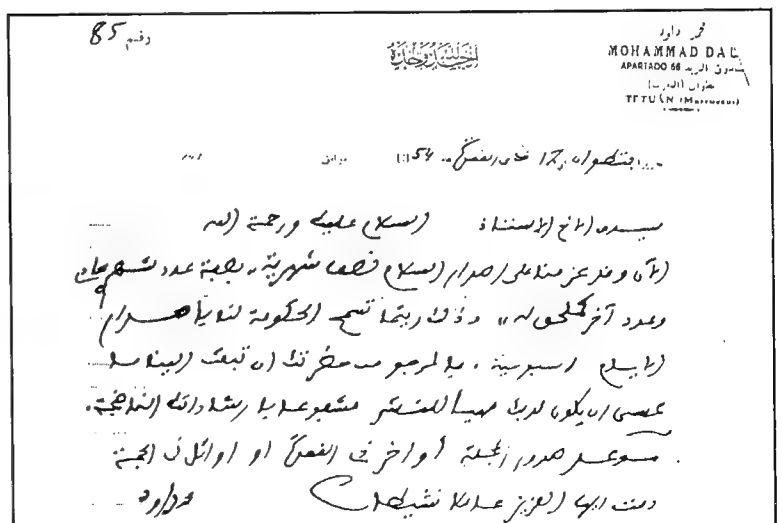 رقم 85
الحمد لله وحده
محمد داود
MOHAMMAD DAU
صندوق البريد APARTADO 66
تطوان (المغرب)
TETUAN (Marruecos)
تطوان 12 54
سيدي الأخ الأستاذ السلام عليك ورحمة الله
الآن وقد عزمنا على إصدار السلام نصف شهرية، بصفة عدد شهري
وعدد آخر كملحق له،، وذلك ريثما تسمح الحكومة لنا بإصدار
السلام أسبوعية، فالمرجو من حضرتك أن تبعث إلينا بما
عسى أن يكون لديك مهيأ للنشر مشفوعا بإرشاداتك الناضجة.
موعد صدور المجلة أواخر ذي القعدة أو أوائل ذي الحجة
دمت أيها العزيز عاملا نشيطا محمد داود